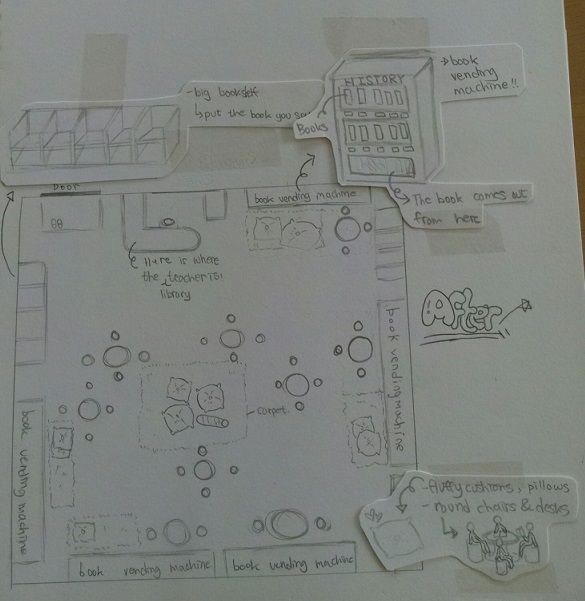 - big bookshelf
↳ put the book you
HISTORY
Books
→ book
vending
machine!!
The book comes out
from here
Door
book vending machine
Here is where
the teacher is!
library
After
book vending machine
book vending machine
carpet.
book vending machine
book vending machine
-fluffy cushions, pillows
- round chairs & desks